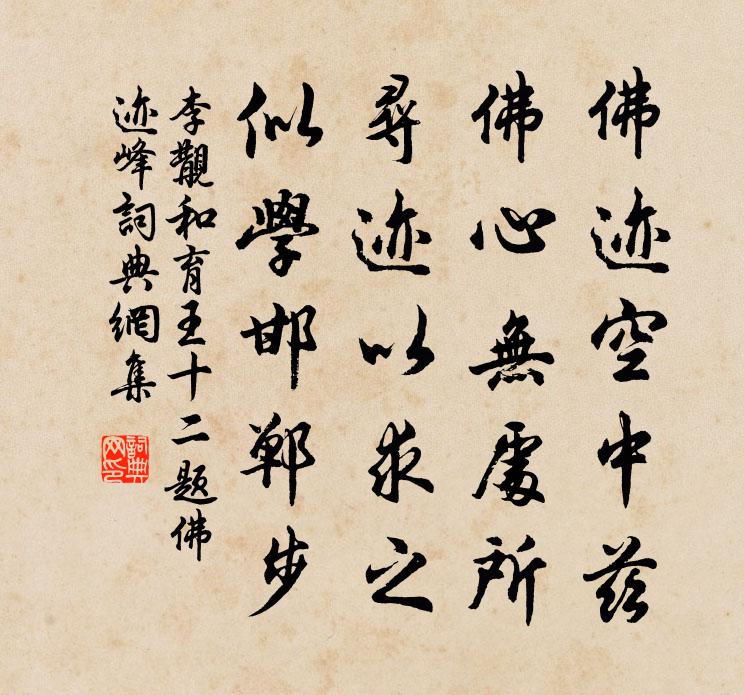 佛迹空中落
佛心無處所
尋迹以求之
似學邯鄲步
李覯和育王十二題佛
迹峰詞典網集
詞典网印